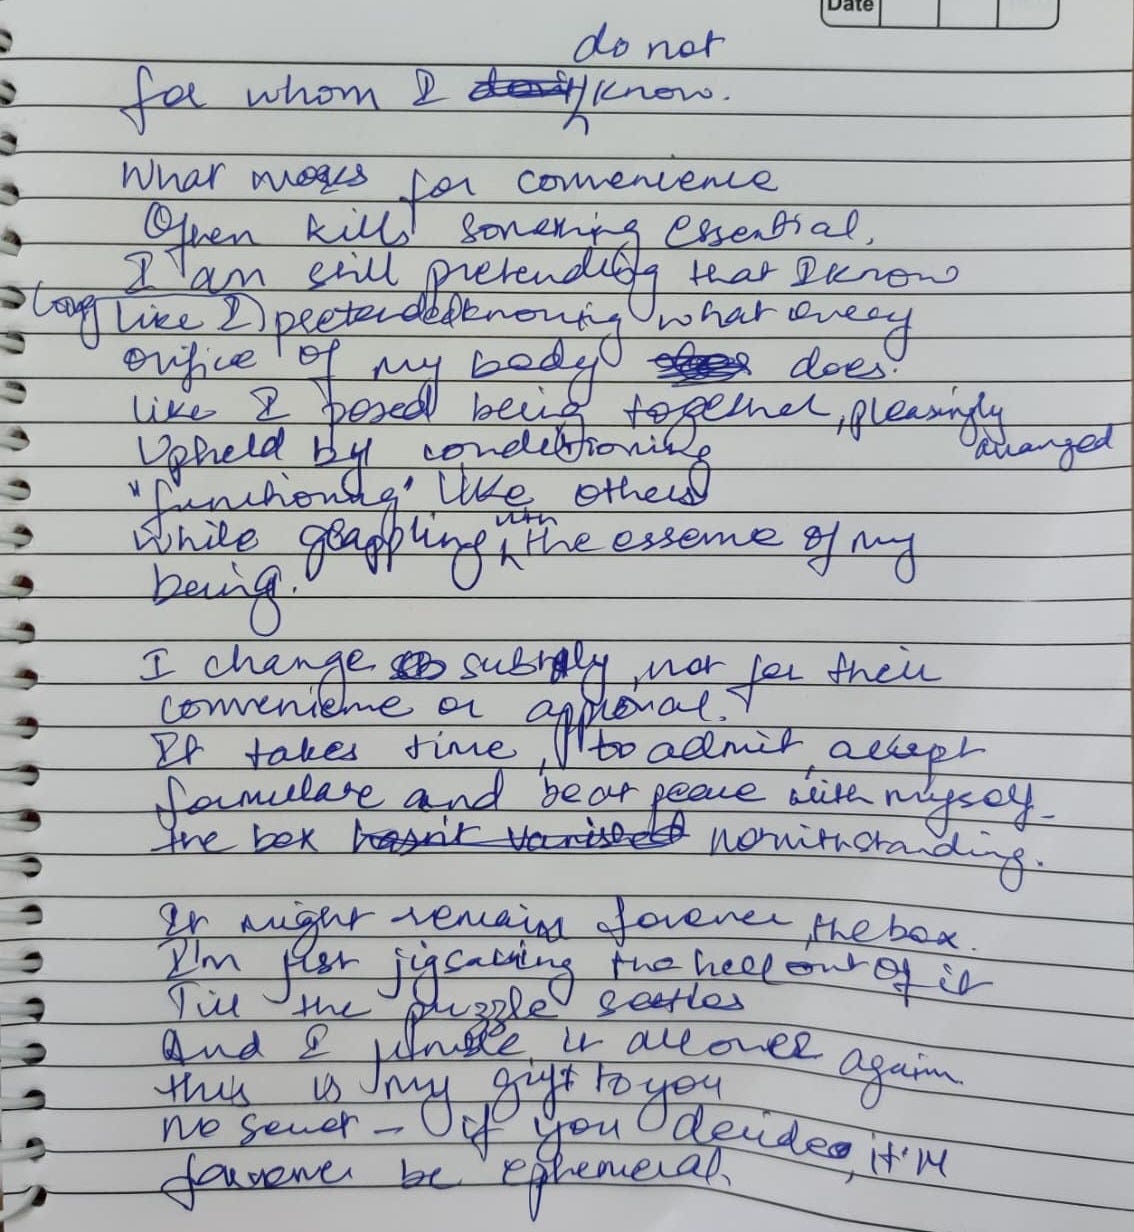 Date
do not
for whom I don't know.
What moves for convenience
Often kills something essential.
I am still pretending that I know
long like I pretended knowing what every
orifice of my body does.
like I posed being together, pleasingly
arranged
Upheld by conditioning
"functioning" like others
while grappling with the essence of my
being.
I change subtly, not for their
convenience or approval.
It takes time, to admit, accept
formulate and be at peace with myself
the box hasn't vanished notwithstanding.
It might remain forever, the box.
I'm just jigsawing the hell out of it
Till the puzzle settles
And I it all over again.
this is my gift to you
no secret - if you decide, it'll
forever be ephemeral.